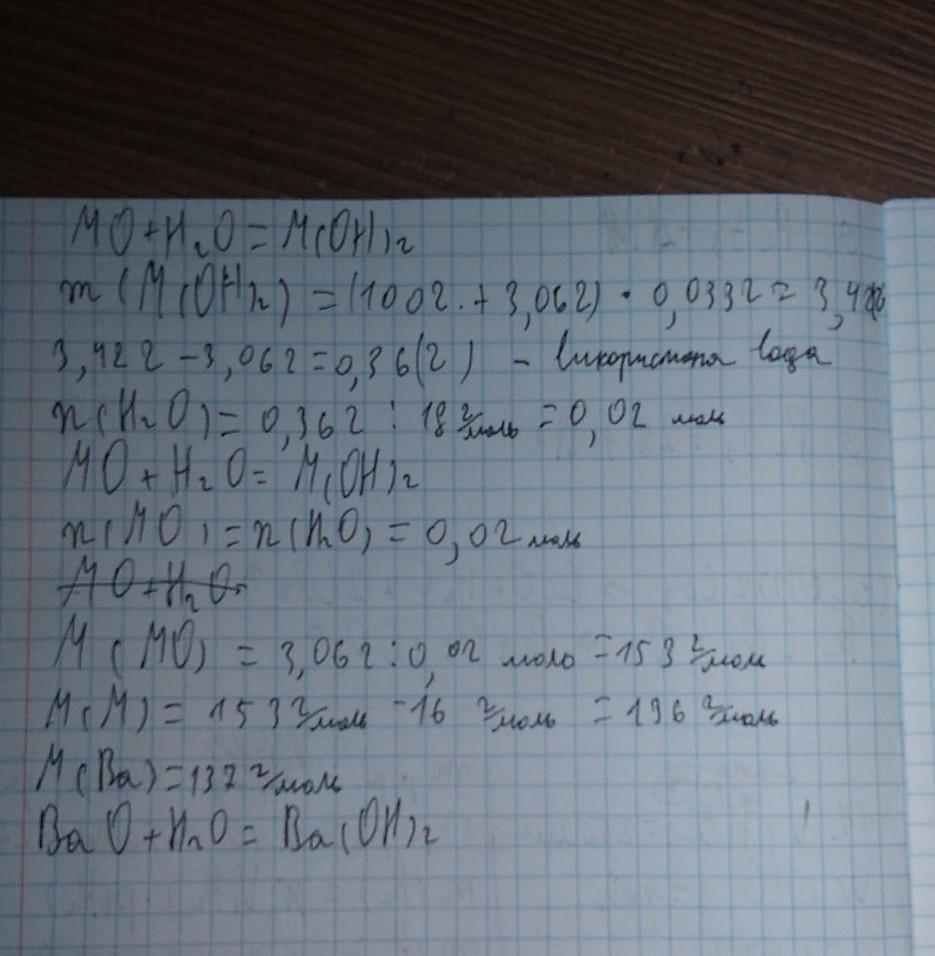 MO+H₂O=M(OH)₂
m(M(OH)₂)=(100г.+3,06г)·0,0332=3,42г
3,42г-3,06г=0,36(г) - використана вода
n(H₂O)=0,36г:18г/моль=0,02 моль
MO+H₂O=M(OH)₂
n(MO)=n(H₂O)=0,02моль
MO+H₂O=
M(MO)=3,06г:0,02 моль=153г/моль
M(M)=153г/моль-16 г/моль=136г/моль
M(Ba)=137г/моль
BaO+H₂O=Ba(OH)₂